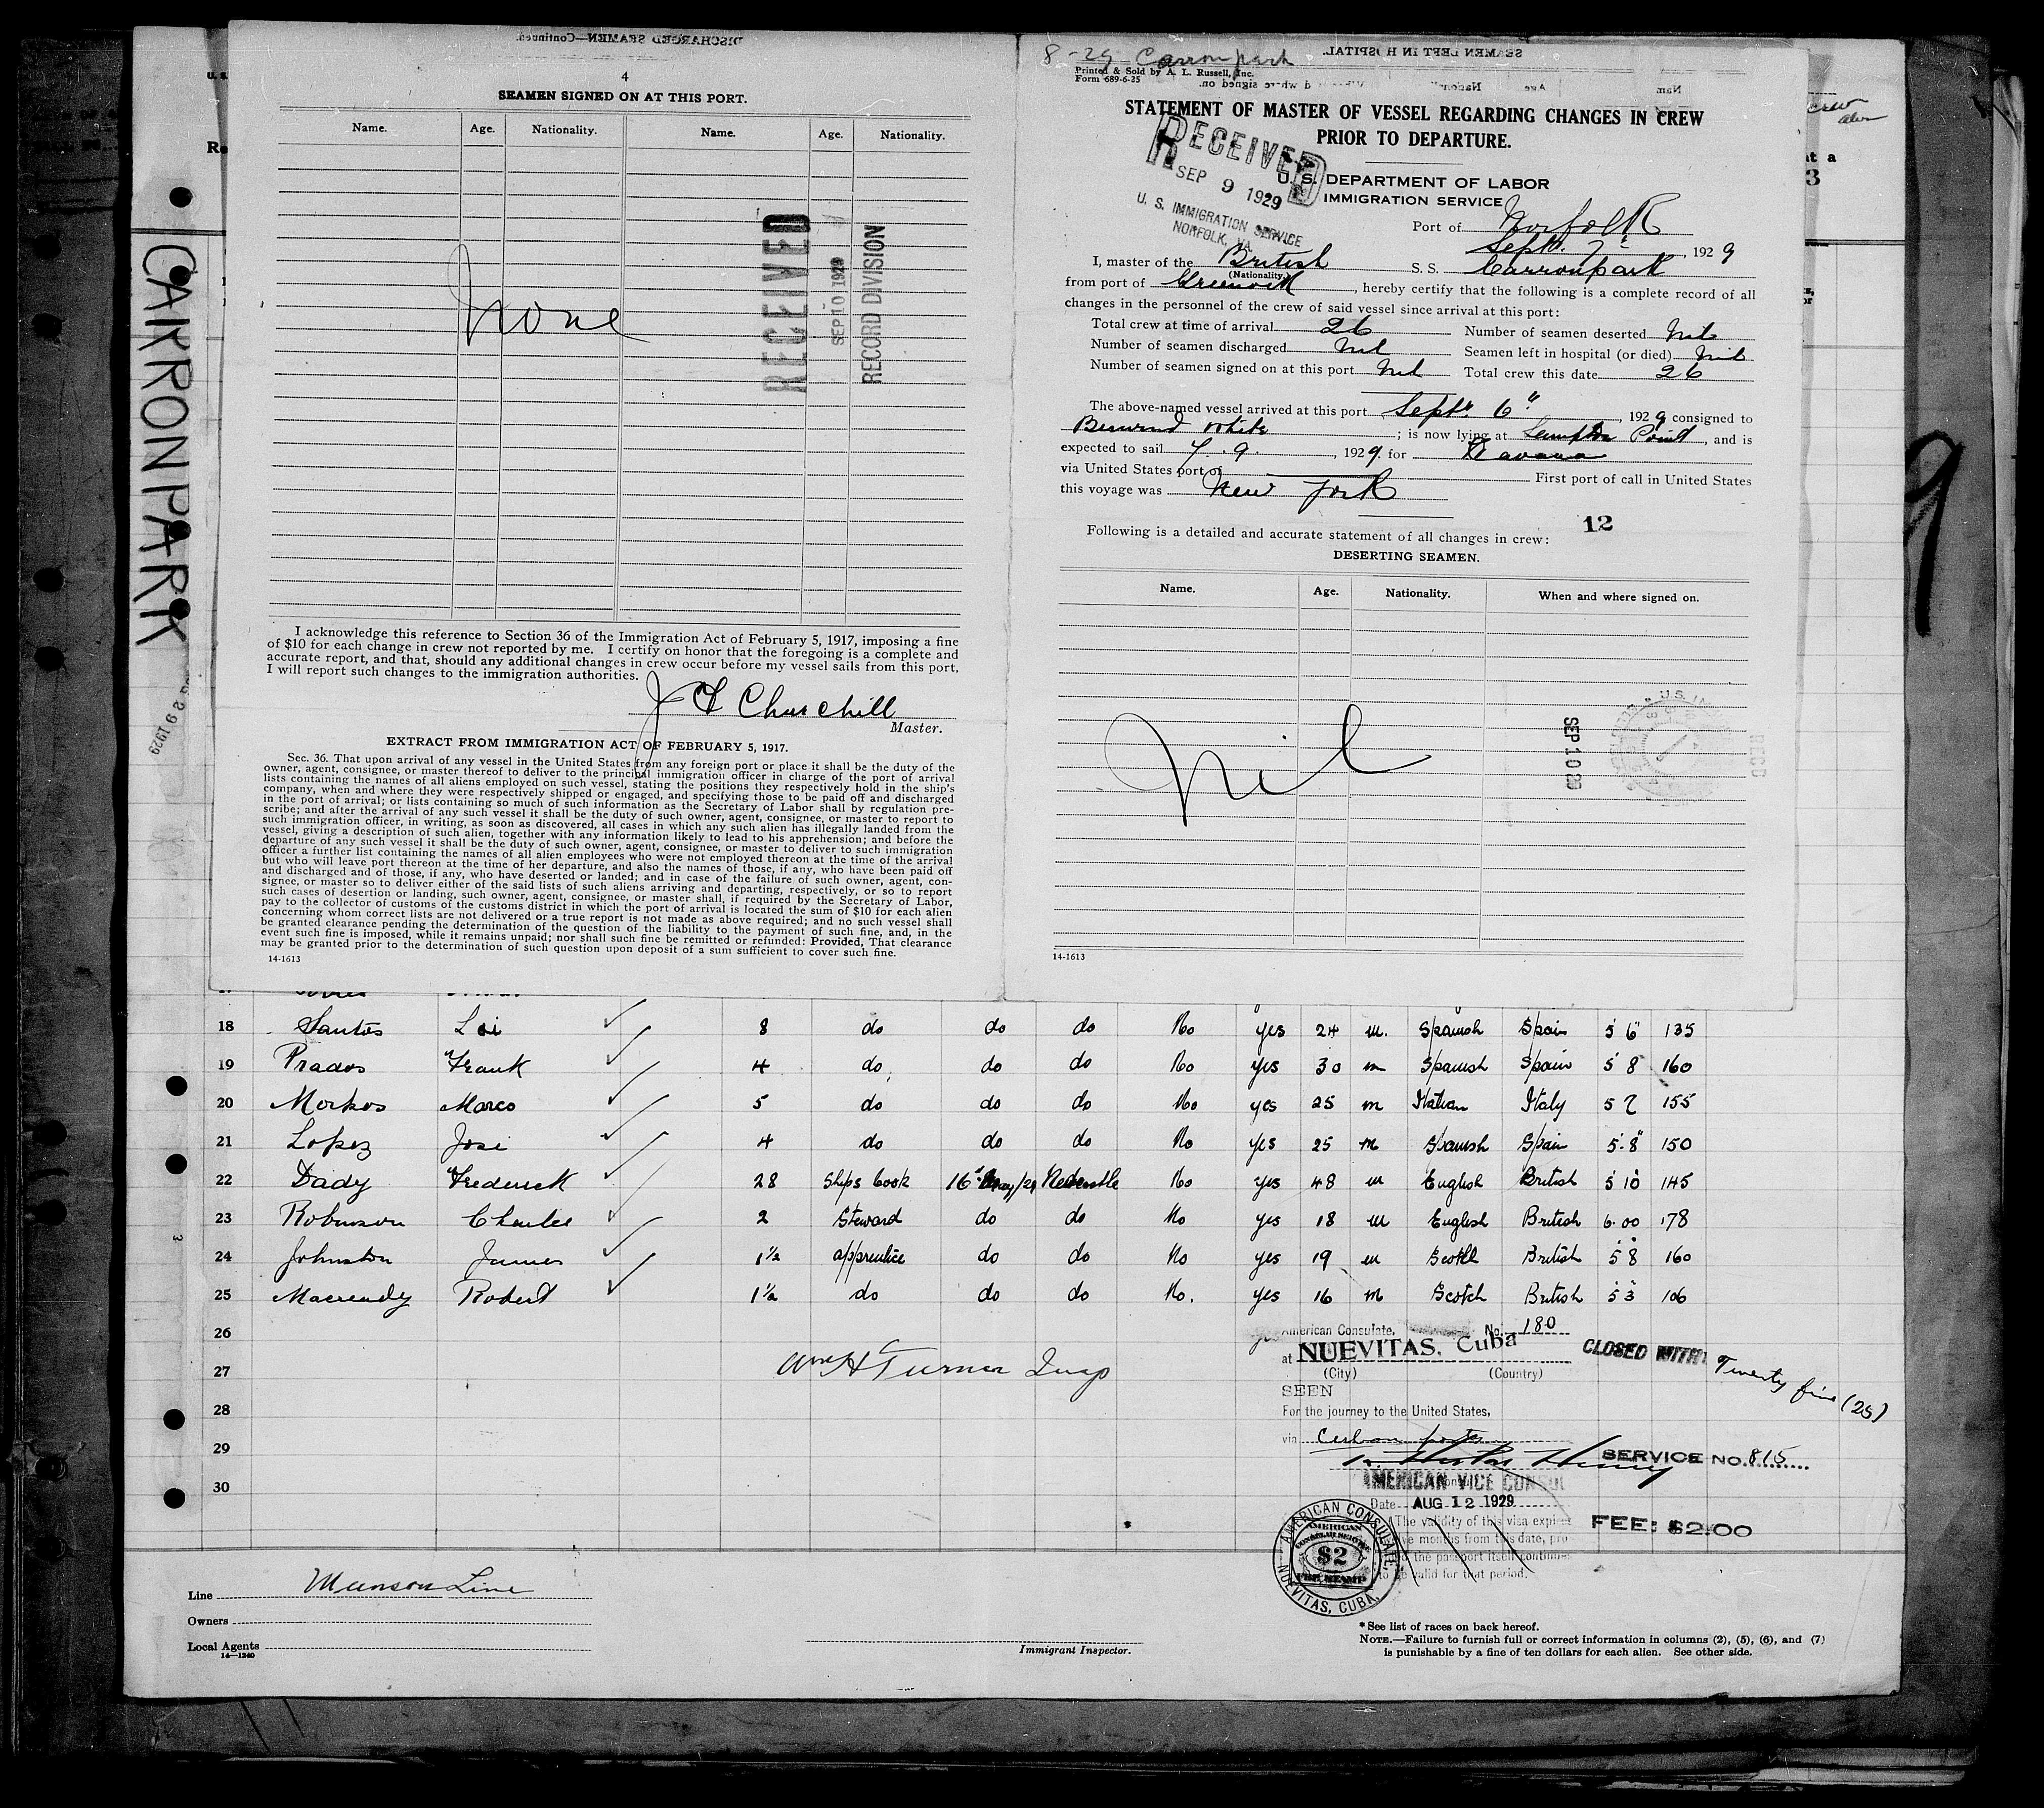 4
SEAMEN SIGNED ON AT THIS PORT.
Name. Age. Nationality. Name. Age. Nationality.
None
RECEIVED
SEP 10 1929
RECORD DIVISION
I acknowledge this reference to Section 36 of the Immigration Act of February 5, 1917, imposing a fine
of $10 for each change in crew not reported by me. I certify on honor that the foregoing is a complete and
accurate report, and that, should any additional changes in crew occur before my vessel sails from this port,
I will report such changes to the immigration authorities.
J F Churchill
Master.
EXTRACT FROM IMMIGRATION ACT OF FEBRUARY 5, 1917.
Sec. 36. That upon arrival of any vessel in the United States from any foreign port or place it shall be the duty of the
owner, agent, consignee, or master thereof to deliver to the principal immigration officer in charge of the port of arrival
lists containing the names of all aliens employed on such vessel, stating the positions they respectively hold in the ship's
company, when and where they were respectively shipped or engaged, and specifying those to be paid off and discharged
in the port of arrival; or lists containing so much of such information as the Secretary of Labor shall by regulation pre-
scribe; and after the arrival of any such vessel it shall be the duty of such owner, agent, consignee, or master to report to
such immigration officer, in writing, as soon as discovered, all cases in which any such alien has illegally landed from the
vessel, giving a description of such alien, together with any information likely to lead to his apprehension; and before the
departure of any such vessel it shall be the duty of such owner, agent, consignee, or master to deliver to such immigration
officer a further list containing the names of all alien employees who were not employed thereon at the time of the arrival
but who will leave port thereon at the time of her departure, and also the names of those, if any, who have been paid off
and discharged and of those, if any, who have deserted or landed; and in case of the failure of such owner, agent, con-
signee, or master so to deliver either of the said lists of such aliens arriving and departing, respectively, or so to report
such cases of desertion or landing, such owner, agent, consignee, or master shall, if required by the Secretary of Labor,
pay to the collector of customs of the customs district in which the port of arrival is located the sum of $10 for each alien
concerning whom correct lists are not delivered or a true report is not made as above required; and no such vessel shall
be granted clearance pending the determination of the question of the liability to the payment of such fine, and, in the
event such fine is imposed, while it remains unpaid; nor shall such fine be remitted or refunded: Provided, That clearance
may be granted prior to the determination of such question upon deposit of a sum sufficient to cover such fine.
14-1613
8-29 Carronpark
Printed & Sold by A. L. Russell, Inc.
Form 689-6-25
STATEMENT OF MASTER OF VESSEL REGARDING CHANGES IN CREW
PRIOR TO DEPARTURE.
RECEIVED
SEP 9 1929
U. S. IMMIGRATION SERVICE
NORFOLK, VA.
U. S. DEPARTMENT OF LABOR
IMMIGRATION SERVICE
Port of Norfolk
Sept. 7, 1929
I, master of the British S. S. Carronpark
(Nationality)
from port of Greenock, hereby certify that the following is a complete record of all
changes in the personnel of the crew of said vessel since arrival at this port:
Total crew at time of arrival 26 Number of seamen deserted Nil
Number of seamen discharged Nil Seamen left in hospital (or died) Nil
Number of seamen signed on at this port Nil Total crew this date 26
The above-named vessel arrived at this port Septr. 6", 1929 consigned to
Berwind White; is now lying at Point, and is
expected to sail 7. 9., 1929. for Havana
via United States port of First port of call in United States
this voyage was New York
12
Following is a detailed and accurate statement of all changes in crew:
DESERTING SEAMEN.
Name. Age. Nationality. When and where signed on.
Nil
SEP 10 29
14-1613
CARRONPARK
9
18 Santos 8 do do do No yes 24 m. Spanish Spain 5 6 135
19 Prados Frank 4 do do do No yes 30 m Spanish Spain 5 8 160
20 Morkos Marco 5 do do do No yes 25 m Italian Italy 5 7 155
21 Lopez Jose 4 do do do No yes 25 m Spanish Spain 5.8" 150
22 Dady Frederick 28 Ships Cook 16 May/29 Newcastle No yes 48 m English British 5 10 145
23 Robinson Charles 2 Steward do do No yes 18 m English British 6.00 178
24 Johnston James 1½ apprentice do do No yes 19 m Scotch British 5 8 160
25 Macready Robert 1½ do do do No. yes 16 m Scotch British 5 3 106
26
27
28
29
30
Wm H Turner Insp
American Consulate, No. 180
at NUEVITAS, Cuba
(City) (Country)
SEEN
For the journey to the United States,
via Cuban ports
AMERICAN VICE CONSUL
Date AUG 12 1929
The validity of this visa expires
months from this date, pro
the passport itself continues
to be valid for that period.
CLOSED WITH Twenty five (25)
SERVICE No. 815
FEE: $2.00
AMERICAN CONSULATE, NUEVITAS, CUBA.
AMERICAN CONSULAR SERVICE
$2
FEE STAMP
Line Munson Line
Owners
Local Agents
14—1240
Immigrant Inspector.
*See list of races on back hereof.
NOTE.—Failure to furnish full or correct information in columns (2), (5), (6), and (7)
is punishable by a fine of ten dollars for each alien. See other side.